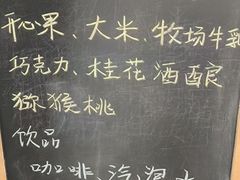 开心果、大米、牧场牛乳
巧克力、桂花酒酿
猕猴桃
饮品
咖啡、汽泡水